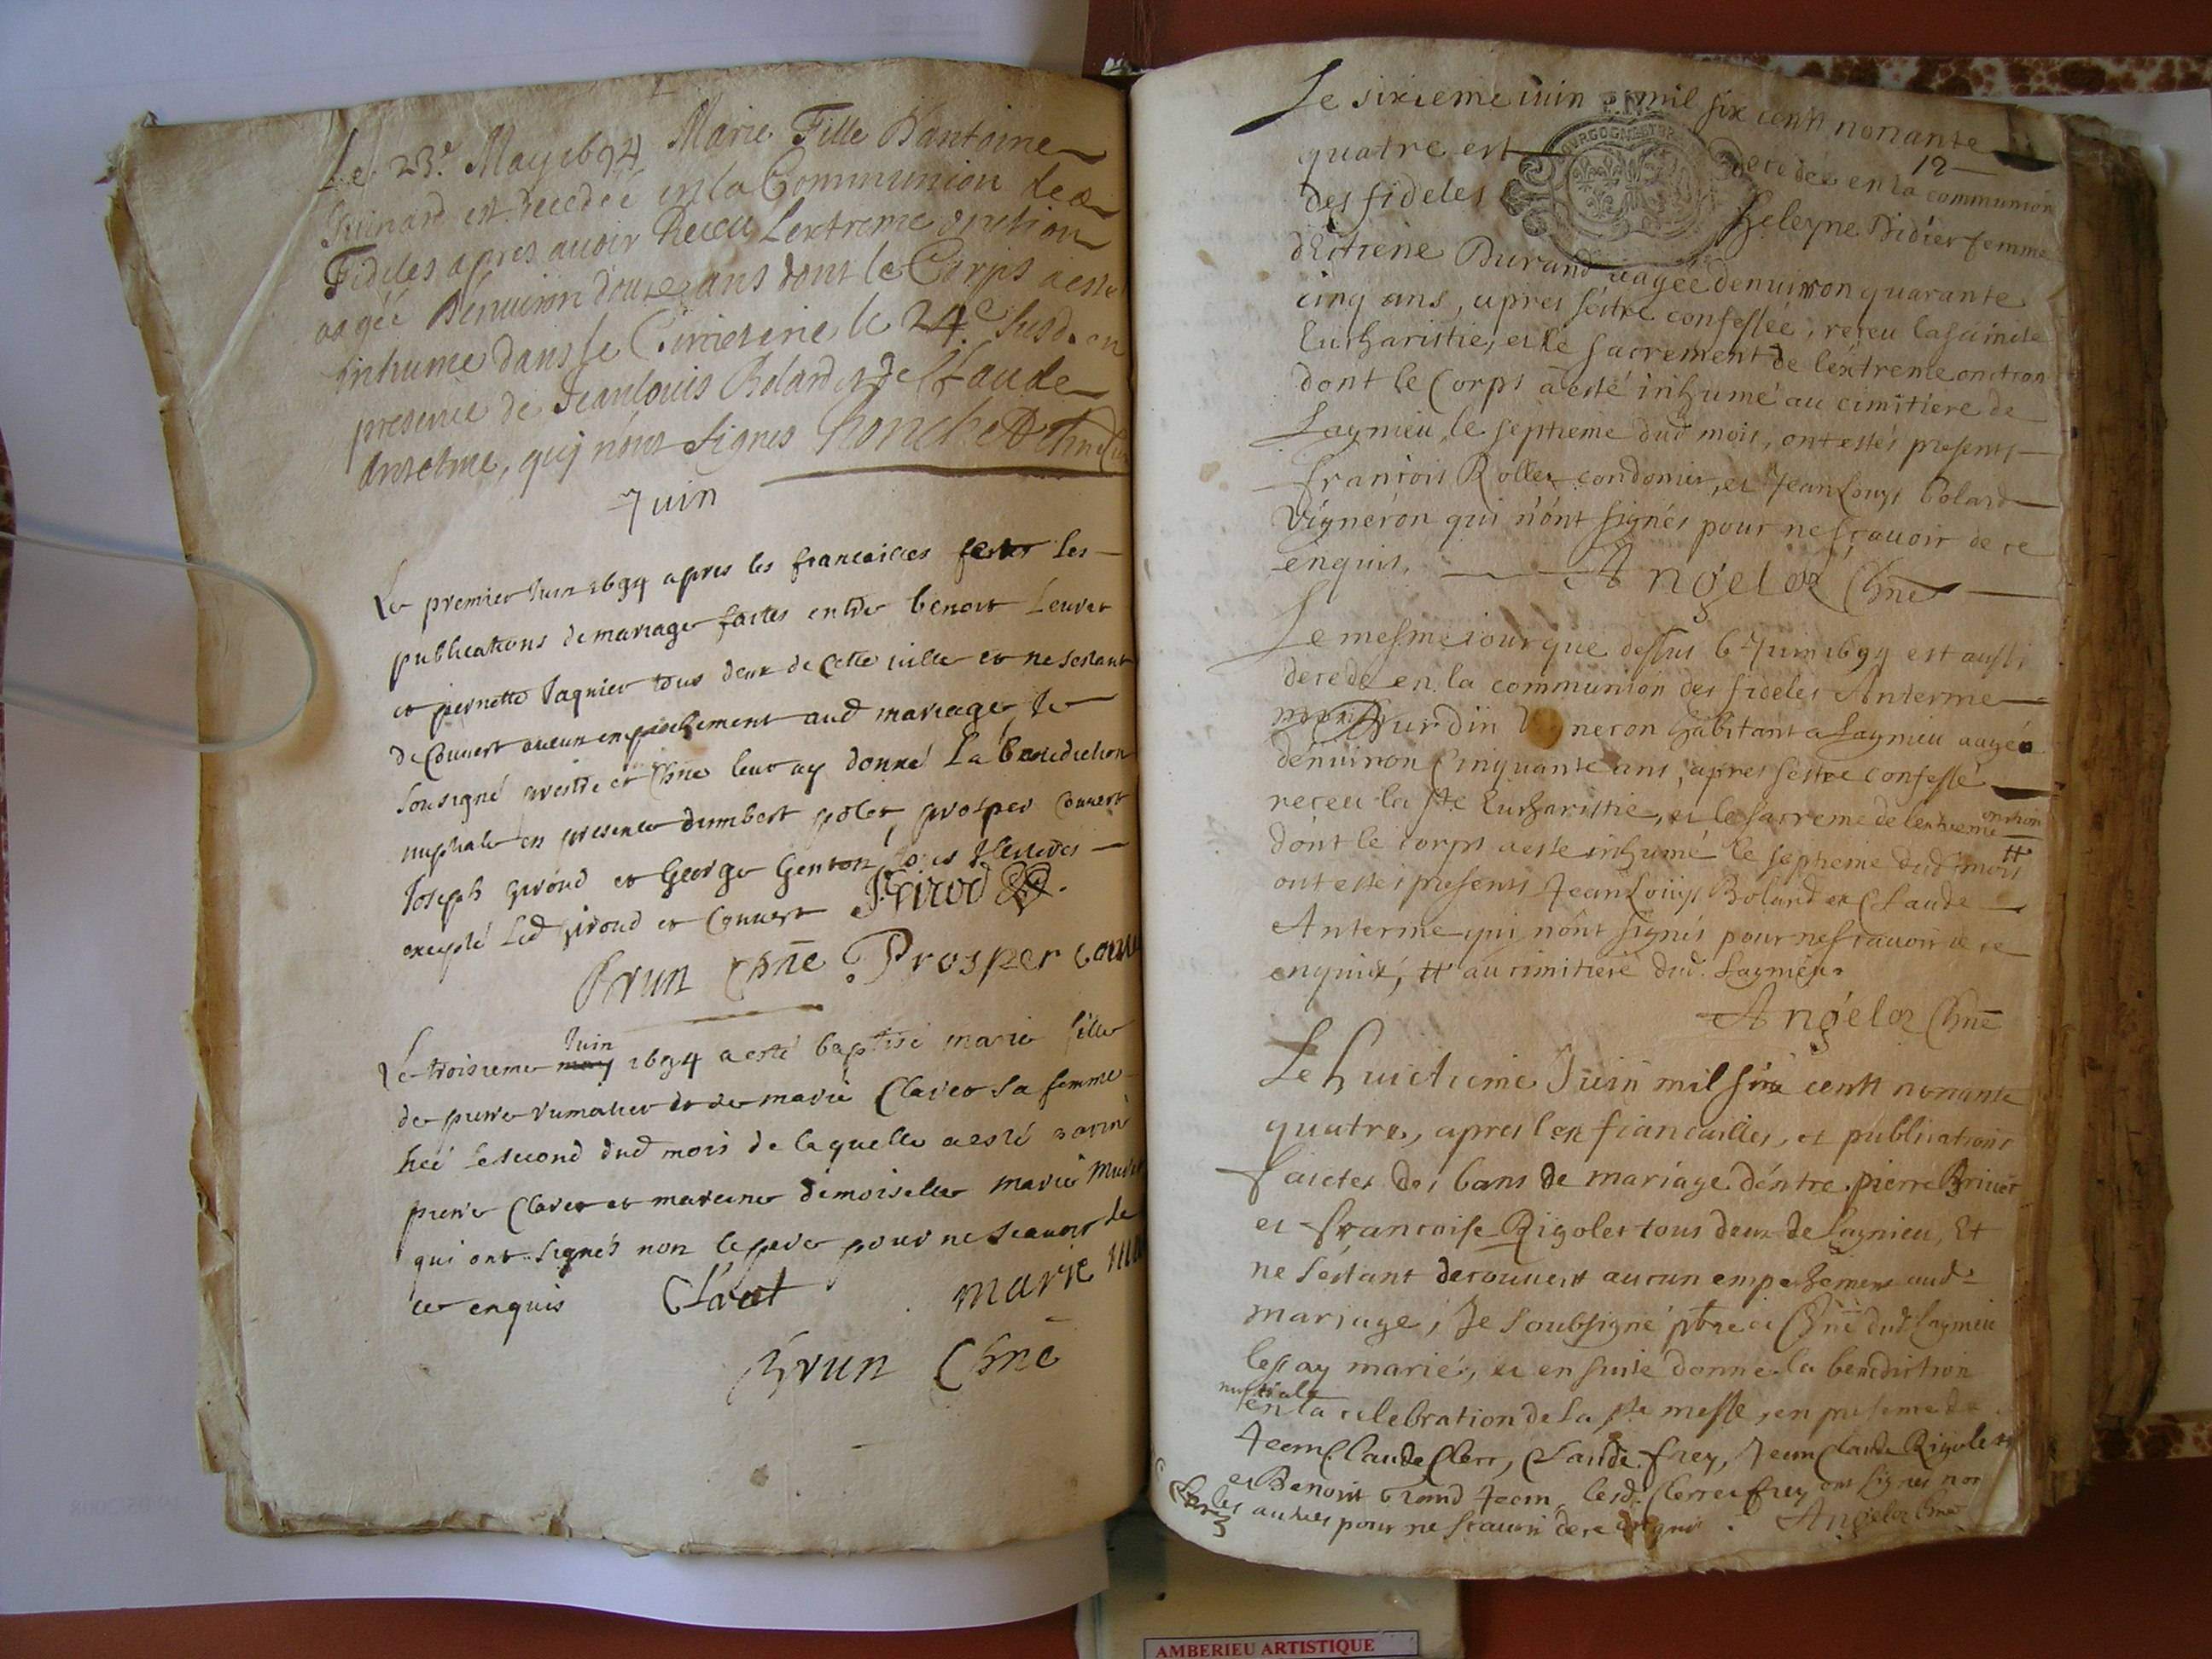 Le 23e May 1694 Marie Fille Dantoine
est decedeé en la Communion des
Fideles apres auoir Receu Lextreme onction
aagée Denuiron douze ans dont le Corps a esté
inhume dans le Cimetiere le 24e susd. en
presence de Jean louis Bolard et de Claude
Anterme, quj n'ont signés Chne
Juin
Le premier Juin 1694 apres les fiancailles les
publications de mariage faites entre benoit
et pernette Jagnier tous deux de Cette uille et ne sestant
decouuert aucun empeschement aud mariage Je
sousigné prestre et Chne leur ay donné La benediction
nuptiale en presence dimbert prosper Conuert
Joseph Giroud et George Genton
excepté Led Giroud et Conuert JGirod
Brun Chne Prosper Conu
Le troisieme Juin may 1694 a esté baptisé marie fille
de pierre rumatier et de marie Claret sa femme
neé le second dud mois de laquelle a esté parin
pierre Claret et mareine dimoiselle marie
qui ont signés non le pere pour ne scauoir de
ce enquis Claret marie
Brun Chne
Le sixieme iuin mil six centz nonante
12
quatre est decedée en la communion
des fideles Heleyne Didier femme
dEtiene Durand aagée denuiron quarante
cinq ans, apres s'estre confessée, receu la saincte
Eucharistie, et le sacrement de l'extreme onction
dont le Corps a esté inhumé au cimitiere de
Lagnieu, le septieme dud mois, ont estés presents
françois Rollet cordonier, et Jean Louys bolard
Vigneron qui n'ont signés pour ne sçauoir de ce
enquis. Angeloz Chne
Le mesme iour que dessus 6 Juin 1694 est aussi
decede en la communion des fideles Anterme
Burdin Vigneron habitant a Lagnieu aagé
denuiron Cinquante ans, apres sestre confessé
receu la ste Eucharistie, et le sacreme de lextreme onction
dont le corps a esté inhumé le septieme dud mois #
ont estes presents Jean Louys Bolard et Claude
Anterme qui n'ont signés pour ne scauoir de ce
enquis, # au cimitiere dud. Lagnieu.
Angeloz Chne
Le huictieme Juin mil six centz nonante
quatre, apres les fiancailles, et publications
faictes des bans de mariage d'entre pierre Briuet
et francoise Rigolet tous deux de Lagnieu, Et
ne s'estant decouuert aucun empechement aud
mariage, Je Soubsigné pbre et Chne dud Lagnieu
les ay mariés, et en suite donne la benediction
nuptiale
en la celebration de la ste messe, en presence de
Jean Claude Clerc, Claude frey, Jean Claude Rigolet
et Benoist Grand Jean, lesd. Clerc et frey ont signes non
les autres pour ne scauoir de ce enquis. Angeloz Chne